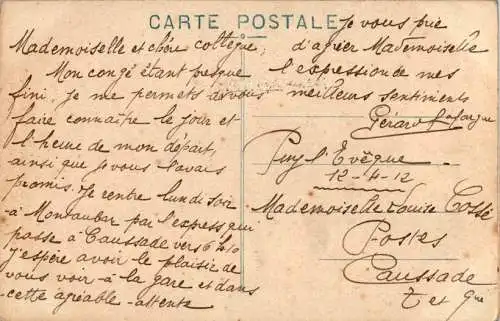 CARTE POSTALE
Mademoiselle et chère collègue,
Mon congé étant presque
fini, je me permets de vous
faire connaître le jour et
l'heure de mon départ,
ainsi que je vous l'avais
promis. Je rentre lundi soir
à Montauban par l'express qui
passe à Caussade vers 6h10
j'espère avoir le plaisir de
vous voir à la gare et dans
cette agréable attente
Je vous prie
d'agréer Mademoiselle
l'expression de mes
meilleurs sentiments
Gérard Lafargue
Puy l'Evêque
12-4-12
Mademoiselle Louise Cossé
Postes
Caussade
T et Gne